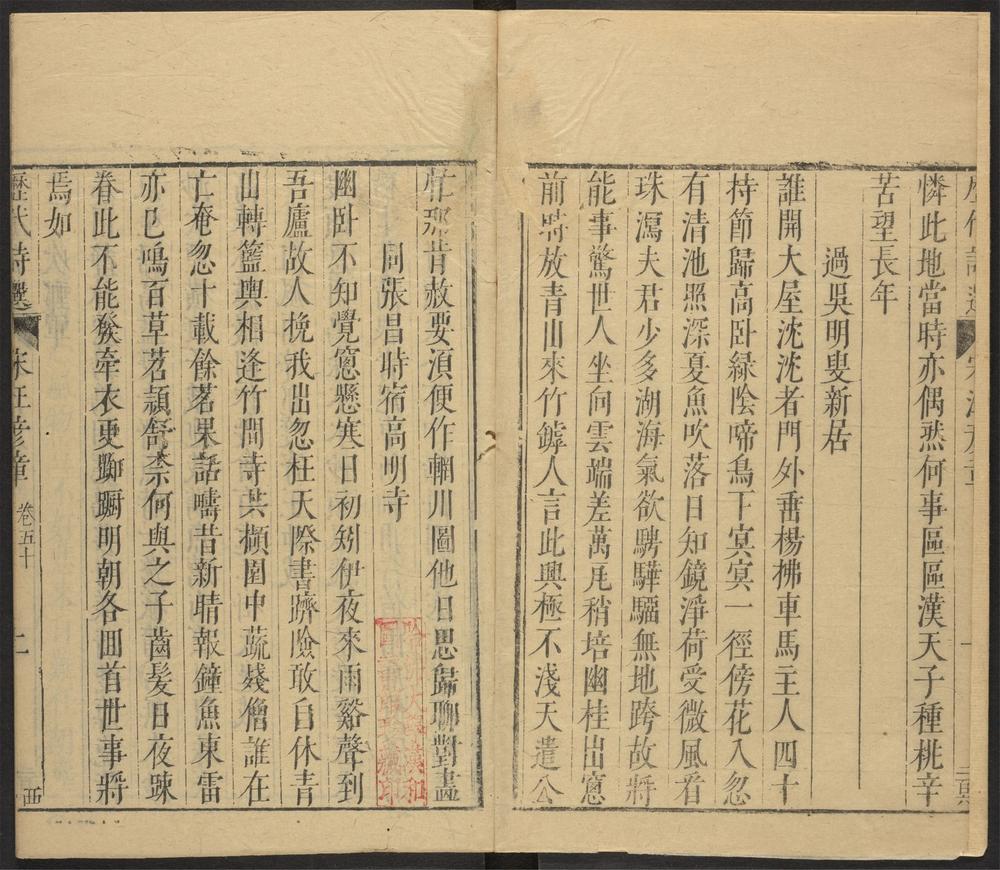 憐此地當時亦偶然何事區區漢天子種桃辛
苦望長年
過吳明叟新居
誰開大屋沈沈者門外垂楊拂車馬主人四十
持節歸高卧緑陰啼鳥下寞寞一徑傍花入忽
有清池照深夏魚吹落日知鏡淨荷受微風看
珠瀉夫君少多湖海氣欲騁驊騮無地跨故將
能事驚世人坐向雲端差萬瓦稍培幽桂出窻
前時放青山來竹罅人言此興極不淺天遣公
忙那昔赦要湏便作輞川圖他日思歸聊對畫
同張昌時宿高明寺
幽卧不知覺窻懸寒日初矧伊夜來雨谿聲到
吾廬故人挽我出忽枉天際書躋險敢自休青
山轉籃輿相逢竹間寺共擷園中蔬殘僧誰在
亡奄忽十載餘茗果話疇昔新晴報鐘魚東雷
亦已鳴百草苕頴舒柰何與之子齒髪日夜踈
眷此不能發牽衣更踟躕明朝各囬首世事將
焉如
歷代詩選 宋汪彥章 卷五十 二